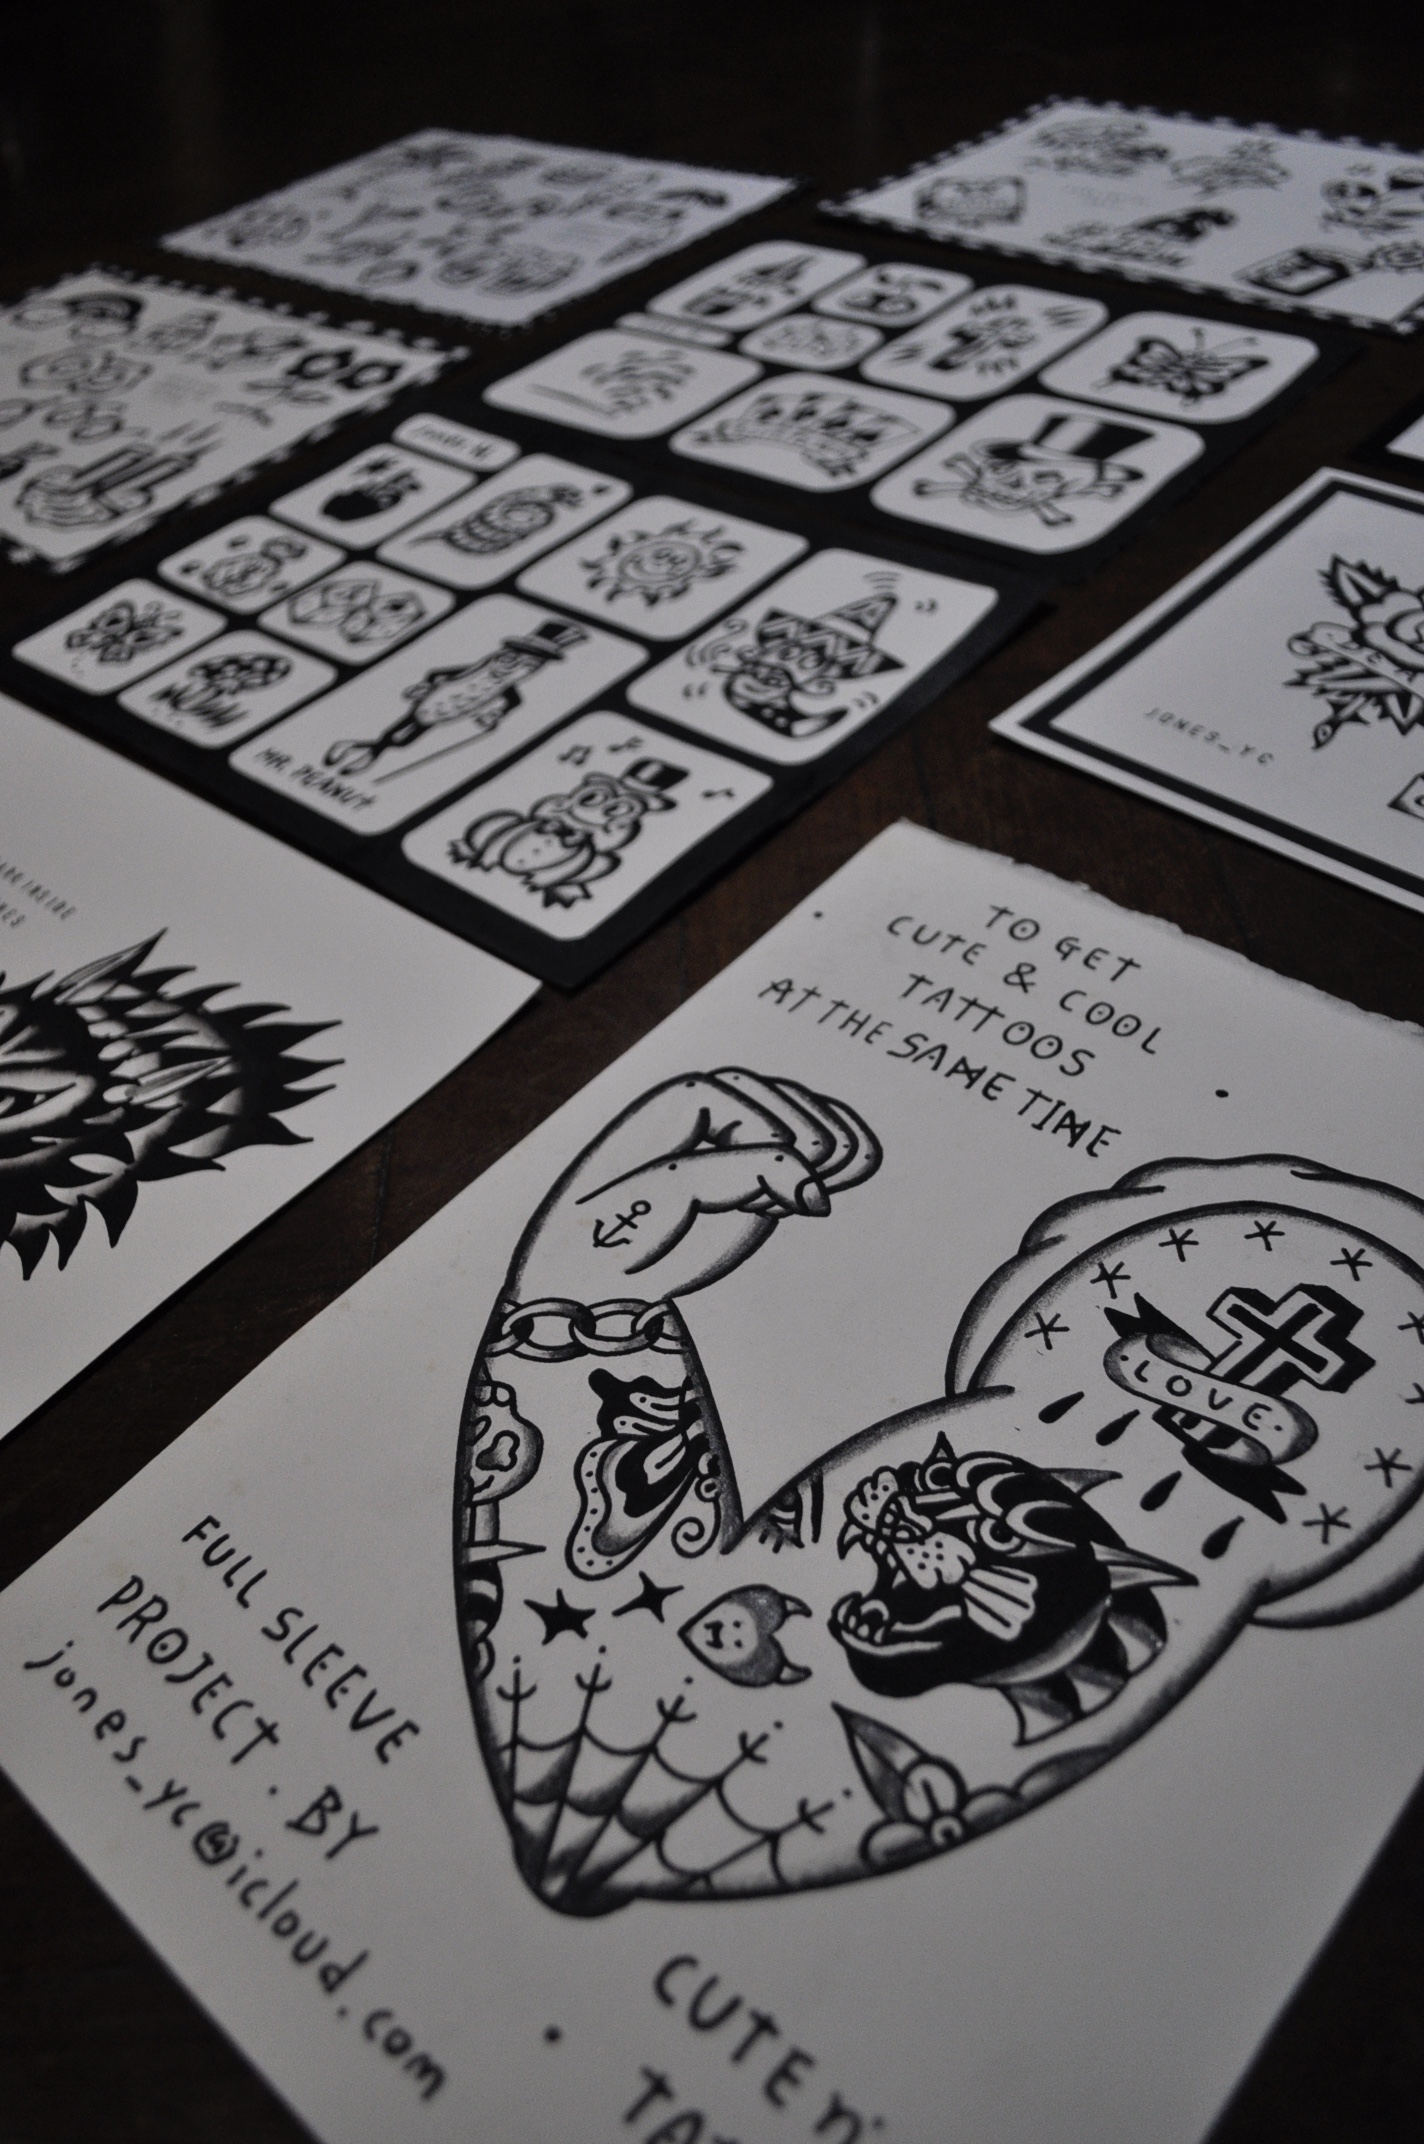 MR. PEANUT
JONES_YC
TO GET
CUTE & COOL
TATTOOS
AT THE SAME TIME
LOVE
FULL SLEEVE
PROJECT . BY
jones_yc@icloud.com
CUTE n'